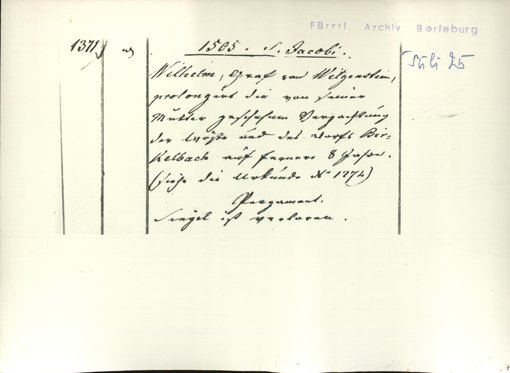 Fürstl. Archiv Berleburg
1371 1505. S. Jacobi. Juli 25
Wilhelm, Graf von Witgenstein,
prolongirt die von seiner
Mutter geschehene Verpachtung
der Wüste und des Dorfs Bir-
kelbach auf fernere 8 Jahre.
(siehe die Urkunde No 1374)
Pergament.
Siegel ist verloren.